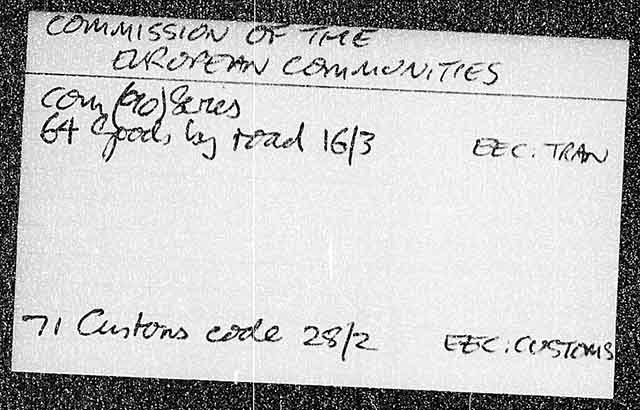 COMMISSION OF THE
EUROPEAN COMMUNITIES
Com (90) Series
64 Goods by road 16/3 EEC: TRAN
71 Customs code 28/2 EEC: CUSTOMS